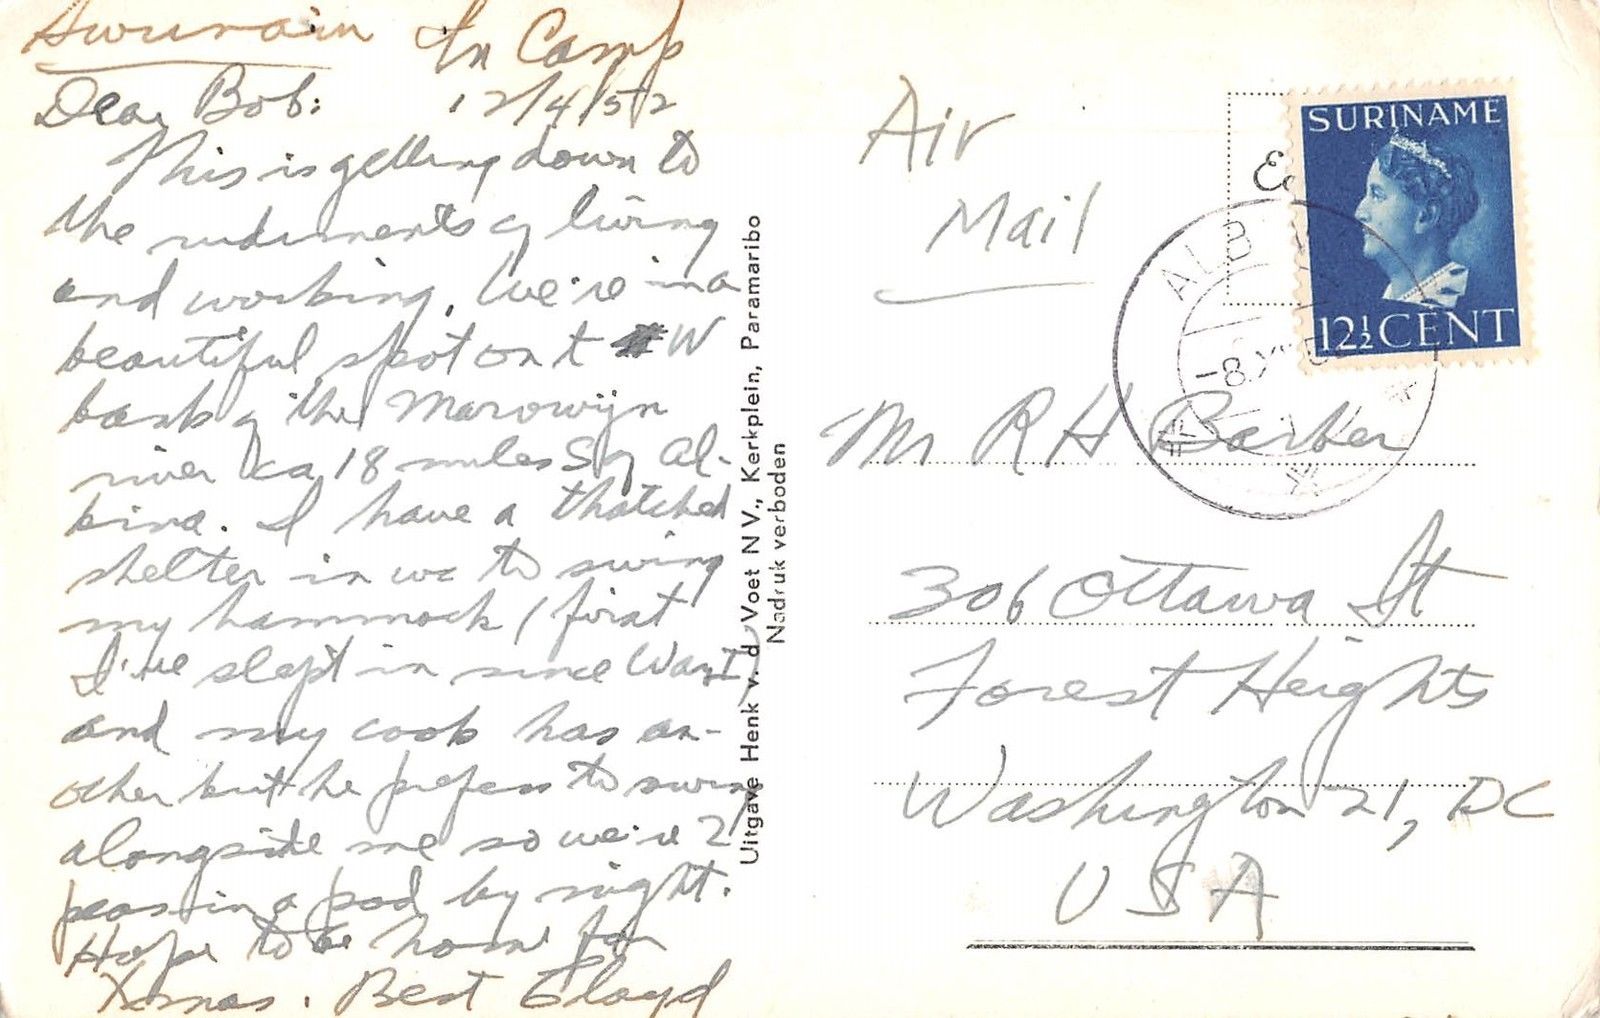 Surinam In Camp
Dear Bob: 12/4/52
This is getting down to
the rudiments of living
and working. We're in a
beautiful spot on t W
bank of the Marowijn
river ca 18 miles S of Al-
bina. I have a thatched
shelter in wc to swing
my hammock (first
I've slept in since War I)
and my cook has an-
other but he prefers to swing
alongside me so we're 2
peas in a pod by night.
Hope to be home for
Xmas. Best Gloyd
Uitgave Henk v. d Voet N V., Kerkplein, Paramaribo
Nadruk verboden
Air
Mail
SURINAME
12½ CENT
ALB
-8.X
Mr R H Barber
306 Ottawa St
Forest Heights
Washington 21, DC
USA